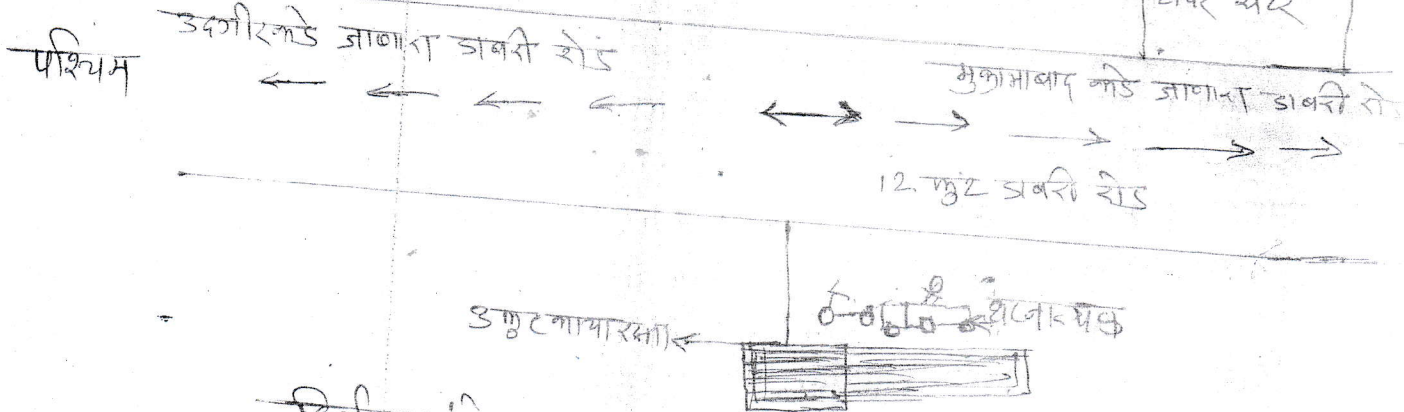 सेंटर
पश्चिम
उदगीरकडे जाणारा डांबरी रोड
मुक्रामाबाद कडे जाणारा डांबरी रो
12 फुट डांबरी रोड
घटनास्थळ